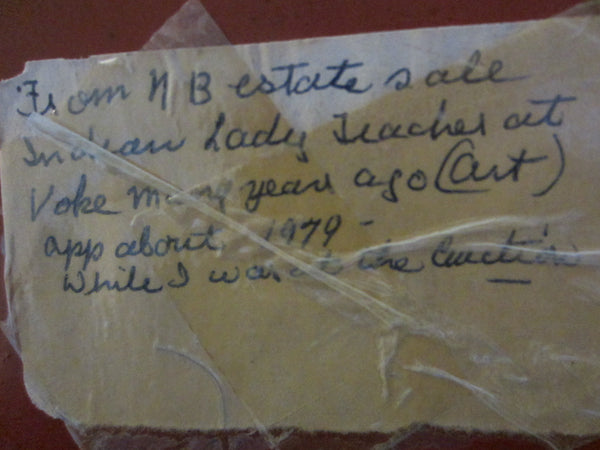 From N B estate sale
Indian Lady Teacher at
Voke many years ago (Art)
app about 1979 -
While I was at the